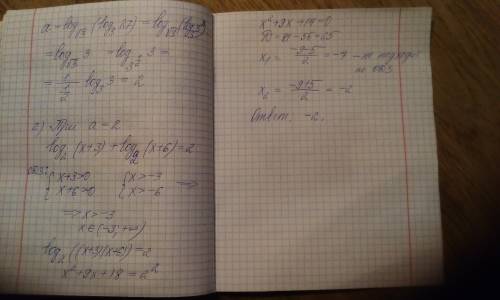 a = log_√3 (log₂ 127) = log_√3 (log₃ 3³)
= log_√3 3 = log_3^(1/2) 3 =
= 1/(1/2) log₃ 3 = 2
2) При a = 2
log₂ (x+3) + log₂ (x+6) = 2
ОДЗ: { x+3>0 { x>-3
{ x+6>0 { x>-6 =>
=> x>-3
x∈(-3; +∞)
log₂ ((x+3)(x+6)) = 2
x² + 9x + 18 = 2²
x² + 9x + 14 = 0
D = 81 - 56 = 25
x₁ = (-9-5)/2 = -7 - не подходит
по ОДЗ
x₂ = (-9+5)/2 = -2
Ответ: -2.